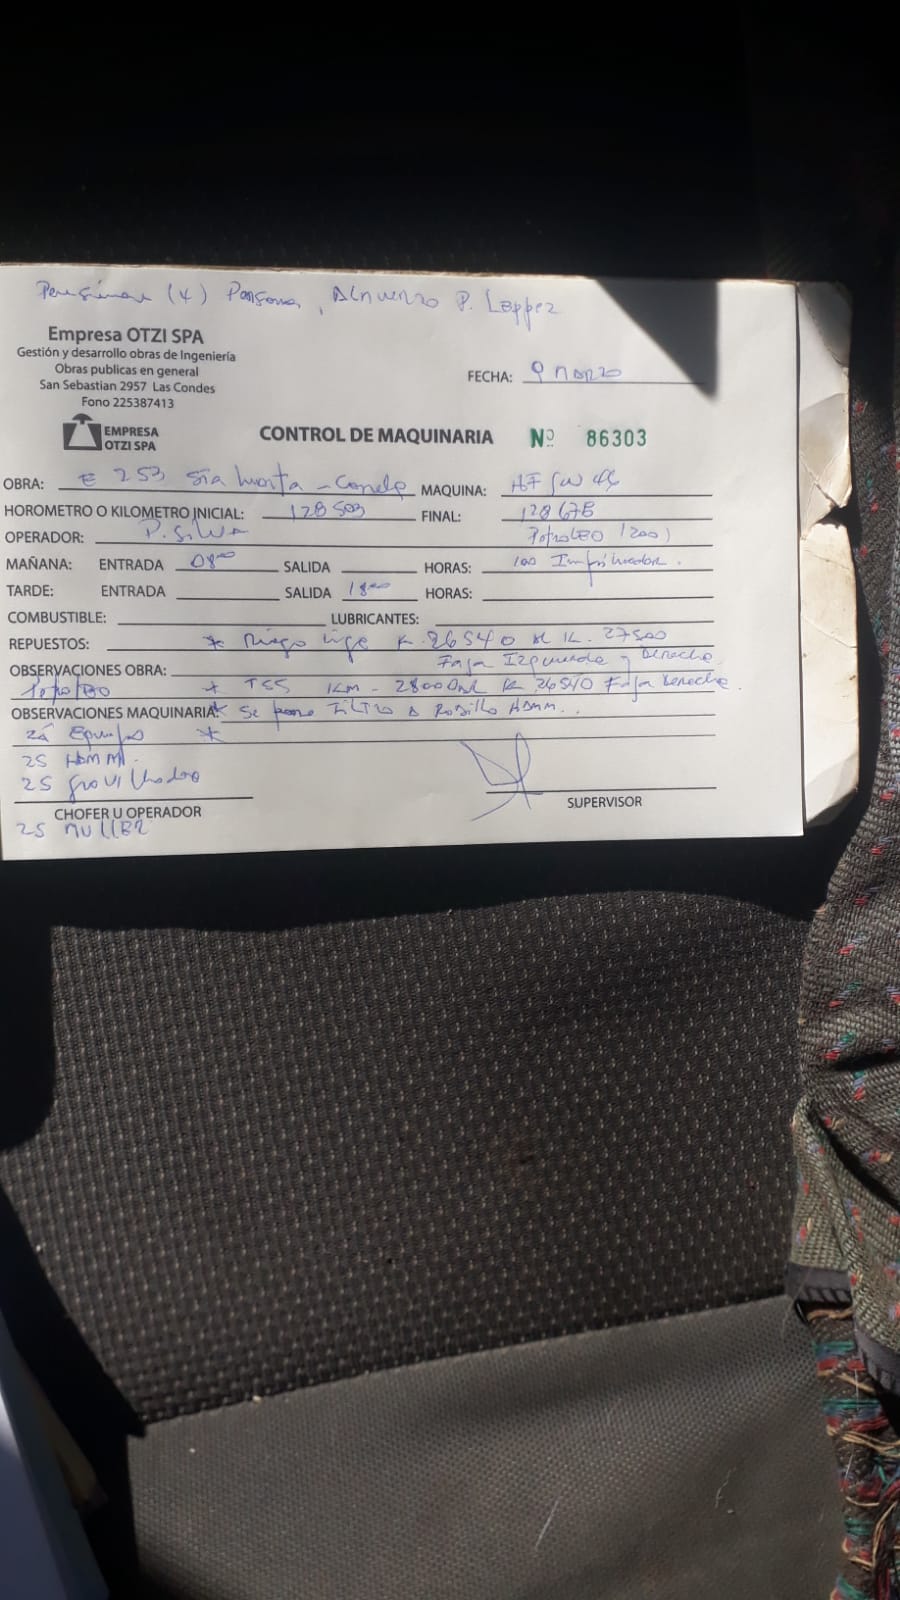 Pensiones (4) Personas, Almuerzo P. Loppez
Empresa OTZI SPA
Gestión y desarrollo obras de Ingeniería
Obras publicas en general
San Sebastian 2957 Las Condes
Fono 225387413
FECHA: 9 marzo
EMPRESA
OTZI SPA
CONTROL DE MAQUINARIA Nº 86303
OBRA: E 253 Sta
MAQUINA:
HOROMETRO O KILOMETRO INICIAL: 128503 FINAL: 128678
OPERADOR: P. Silva Petroleo (200)
MAÑANA: ENTRADA 08:00 SALIDA HORAS: 100
TARDE: ENTRADA SALIDA 18:00 HORAS:
COMBUSTIBLE: LUBRICANTES:
REPUESTOS: * Riego Liga K. 26540 al K. 27500
Faja Izquierda y Derecha
OBSERVACIONES OBRA:
Petroleo * TSS KM - 28000 al K 26540 Faja Derecha.
OBSERVACIONES MAQUINARIA: * Se pone Filtro a Rodillo Hamm.
Equipos *
25 Hamm
25 Gravilladora
CHOFER U OPERADOR SUPERVISOR
25 Muller